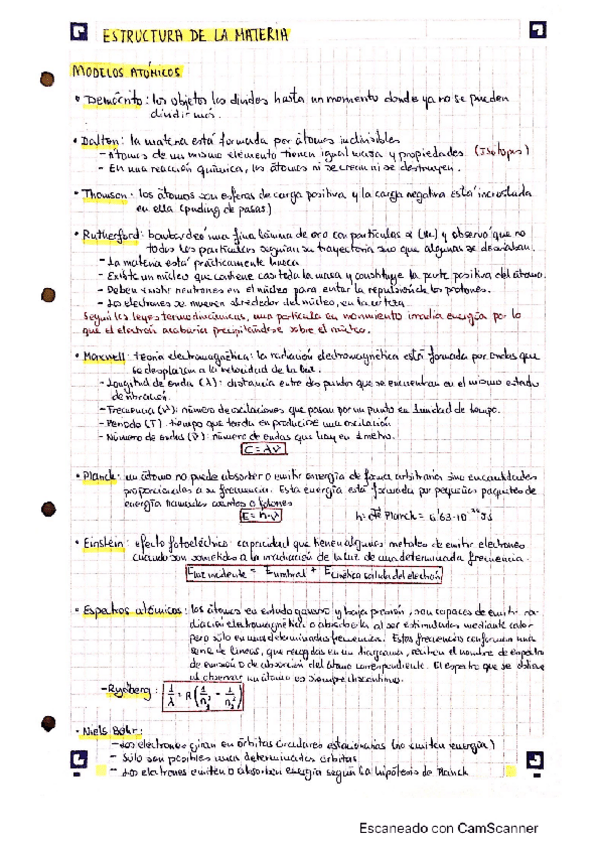 ESTRUCTURA DE LA MATERIA
MODELOS ATÓMICOS
• Demócrito: los objetos los divides hasta un momento donde ya no se pueden
dividir más.
• Dalton: la materia está formada por átomos indivisibles
- Átomos de un mismo elemento tienen igual masa y propiedades. (Isótopos)
- En una reacción química, los átomos ni se crean ni se destruyen.
• Thomson: los átomos son esferas de carga positiva y la carga negativa está incrustada
en ella (puding de pasas)
• Rutherford: bombardeó una fina lámina de oro con partículas α (He) y observó que no
todas las partículas seguían su trayectoria sino que algunas se desviaban.
- La materia está prácticamente hueca
- Existe un núcleo que contiene casi toda la masa y constituye la parte positiva del átomo.
- Deben existir neutrones en el núcleo para evitar la repulsión de los protones.
- Los electrones se mueven alrededor del núcleo, en la corteza
Según las leyes termodinámicas, una partícula en movimiento irradia energía por lo
que el electrón acabaría precipitándose sobre el núcleo.
• Maxwell: teoría electromagnética: la radiación electromagnética está formada por ondas que
se desplazan a la velocidad de la luz.
- Longitud de onda (λ): distancia entre dos puntos que se encuentran en el mismo estado
de vibración.
- Frecuencia (ν): número de oscilaciones que pasan por un punto en 1 unidad de tiempo.
- Periodo (T): tiempo que tarda en producirse una oscilación
- Número de ondas (ν̄): número de ondas que hay en 1 metro.
C = λν
• Planck: un átomo no puede absorber o emitir energía de forma arbitraria sino en cantidades
proporcionales a su frecuencia. Esta energía está formada por pequeños paquetes de
energía llamados cuantos o fotones
E = h·ν h: cte Planck = 6'63·10⁻³⁴ Js
• Einstein: efecto fotoeléctrico: capacidad que tienen algunos metales de emitir electrones
cuando son sometidos a la irradiación de la luz de una determinada frecuencia.
E luz incidente = E umbral + E cinética salida del electrón
• Espectros atómicos: los átomos en estado gaseoso y baja presión, son capaces de emitir ra-
diación electromagnética o absorberla al ser estimulados mediante calor
pero sólo en unas determinadas frecuencias. Estas frecuencias conforman una
serie de líneas, que recogidas en un diagrama, reciben el nombre de espectro
de emisión o de absorción del átomo correspondiente. El espectro que se obtiene
al observar un átomo es siempre discontinuo.
- Rydberg: 1/λ = R (1/n₁² - 1/n₂²)
• Niels Bohr:
- Los electrones giran en órbitas circulares estacionarias (no emiten energía)
- Sólo son posibles unas determinadas órbitas
- Los electrones emiten o absorben energía según la hipótesis de Planck
Escaneado con CamScanner